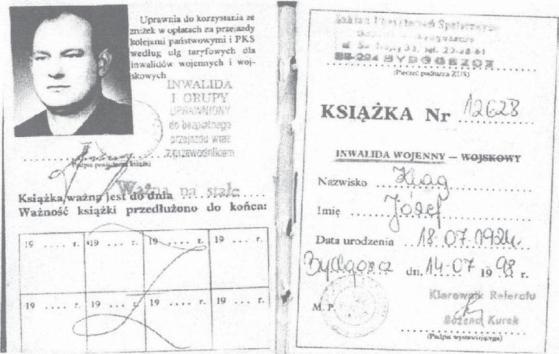 Uprawnia do korzystania ze
zniżek w opłatach za przejazdy
kolejami państwowymi i PKS
według ulg taryfowych dla
inwalidów wojennych i woj-
skowych
INWALIDA
I GRUPY
UPRAWNIONY
do bezpłatnego
przejazdu wraz
z przewodnikiem
Ważna na stałe
Książka ważna jest do dnia
Ważność książki przedłużono do końca:
19 .... r. 19 .... r. 19 .... r. 19 .... r.
19 .... r. 19 .... r. 19 .... r. 19 .... r.
Zakład Ubezpieczeń Społecznych
BYDGOSZCZ
(Pieczęć podłużna ZUS)
KSIĄŻKA Nr 12628
INWALIDA WOJENNY — WOJSKOWY
Nazwisko Kląg
Imię Józef
Data urodzenia 18.07.1924
Bydgoszcz dn. 14-07 1998 r.
M. P.
Kierownik Referatu
Bożena Kurek
(Podpis wystawiającego)